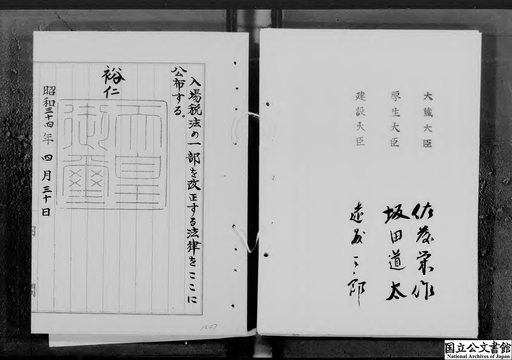 大蔵大臣 佐藤栄作
厚生大臣 坂田道太
建設大臣 遠藤三郎
入場税法の一部を改正する法律をここに
公布する。
裕仁
天皇御璽
昭和三十四年四月三十日
国立公文書館
National Archives of Japan